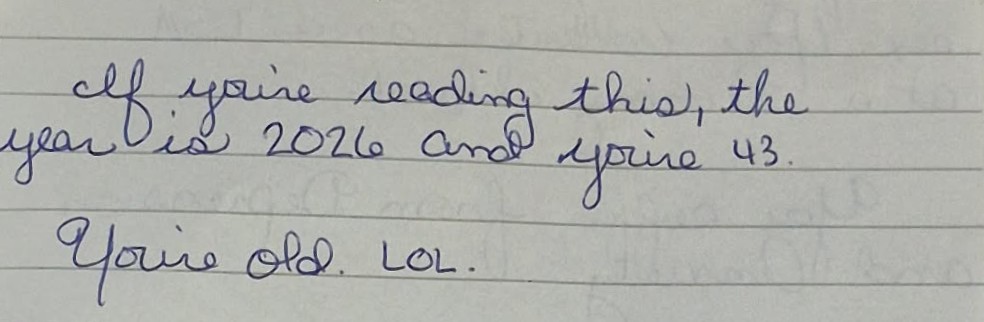 If you're reading this, the
year is 2026 and you're 43.
You're old. LOL.